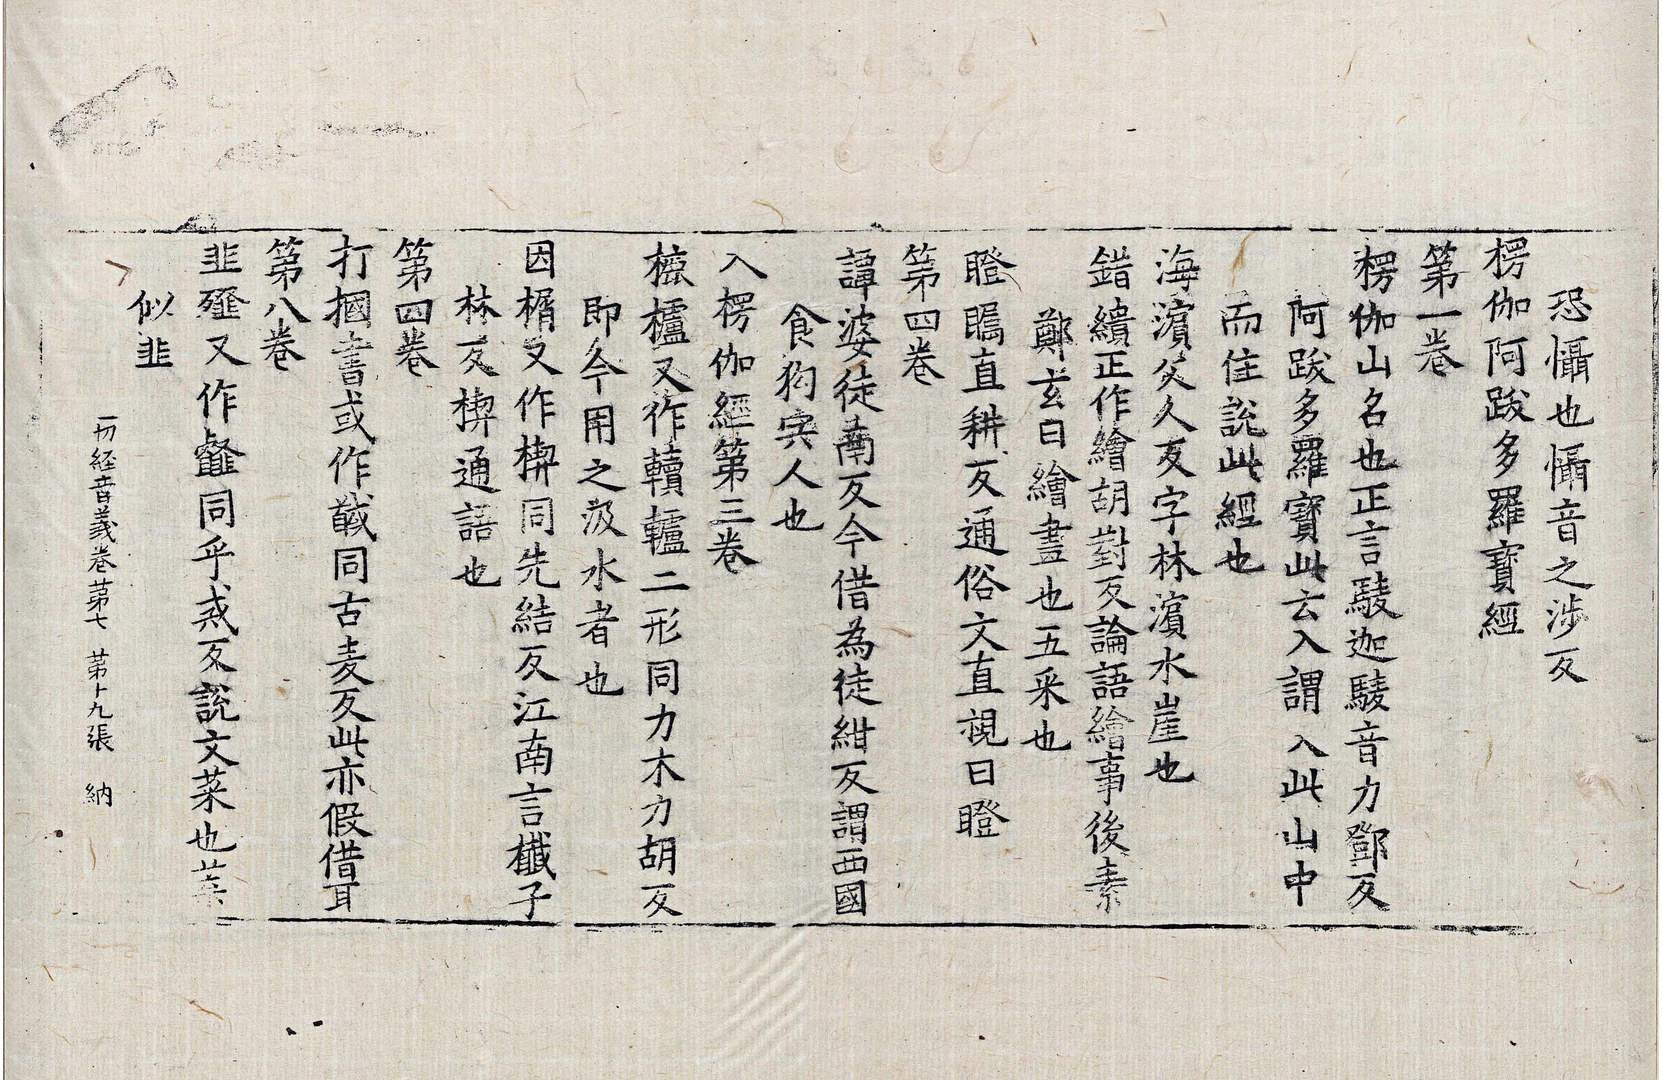 恐懾也懾音之涉反
楞伽阿跋多羅寶經
第一卷
楞伽山名也正言駿迦駿音力鄧反
阿跋多羅寶此云入謂入此山中
而住說此經也
海濵父人反字林濵水崖也
錯繢正作繪胡對反論語繪事後素
鄭玄曰繪畫也五采也
瞪矚直耕反通俗文直視曰瞪
第四卷
譚婆徒南反今借為徒紺反謂西國
食狗宍人也
入楞伽經第三卷
櫨又作轒轤二形同力木力胡反
即今用之汲水者也
因楯又作楔同先結反江南言櫼子
林反楔通語也
第四卷
打摑書或作馘同古麦反此亦假借耳
第八卷
韭薤又作齏同乎戒反說文菜也葉
似韭
一切経音義卷苐七 苐十九張 納